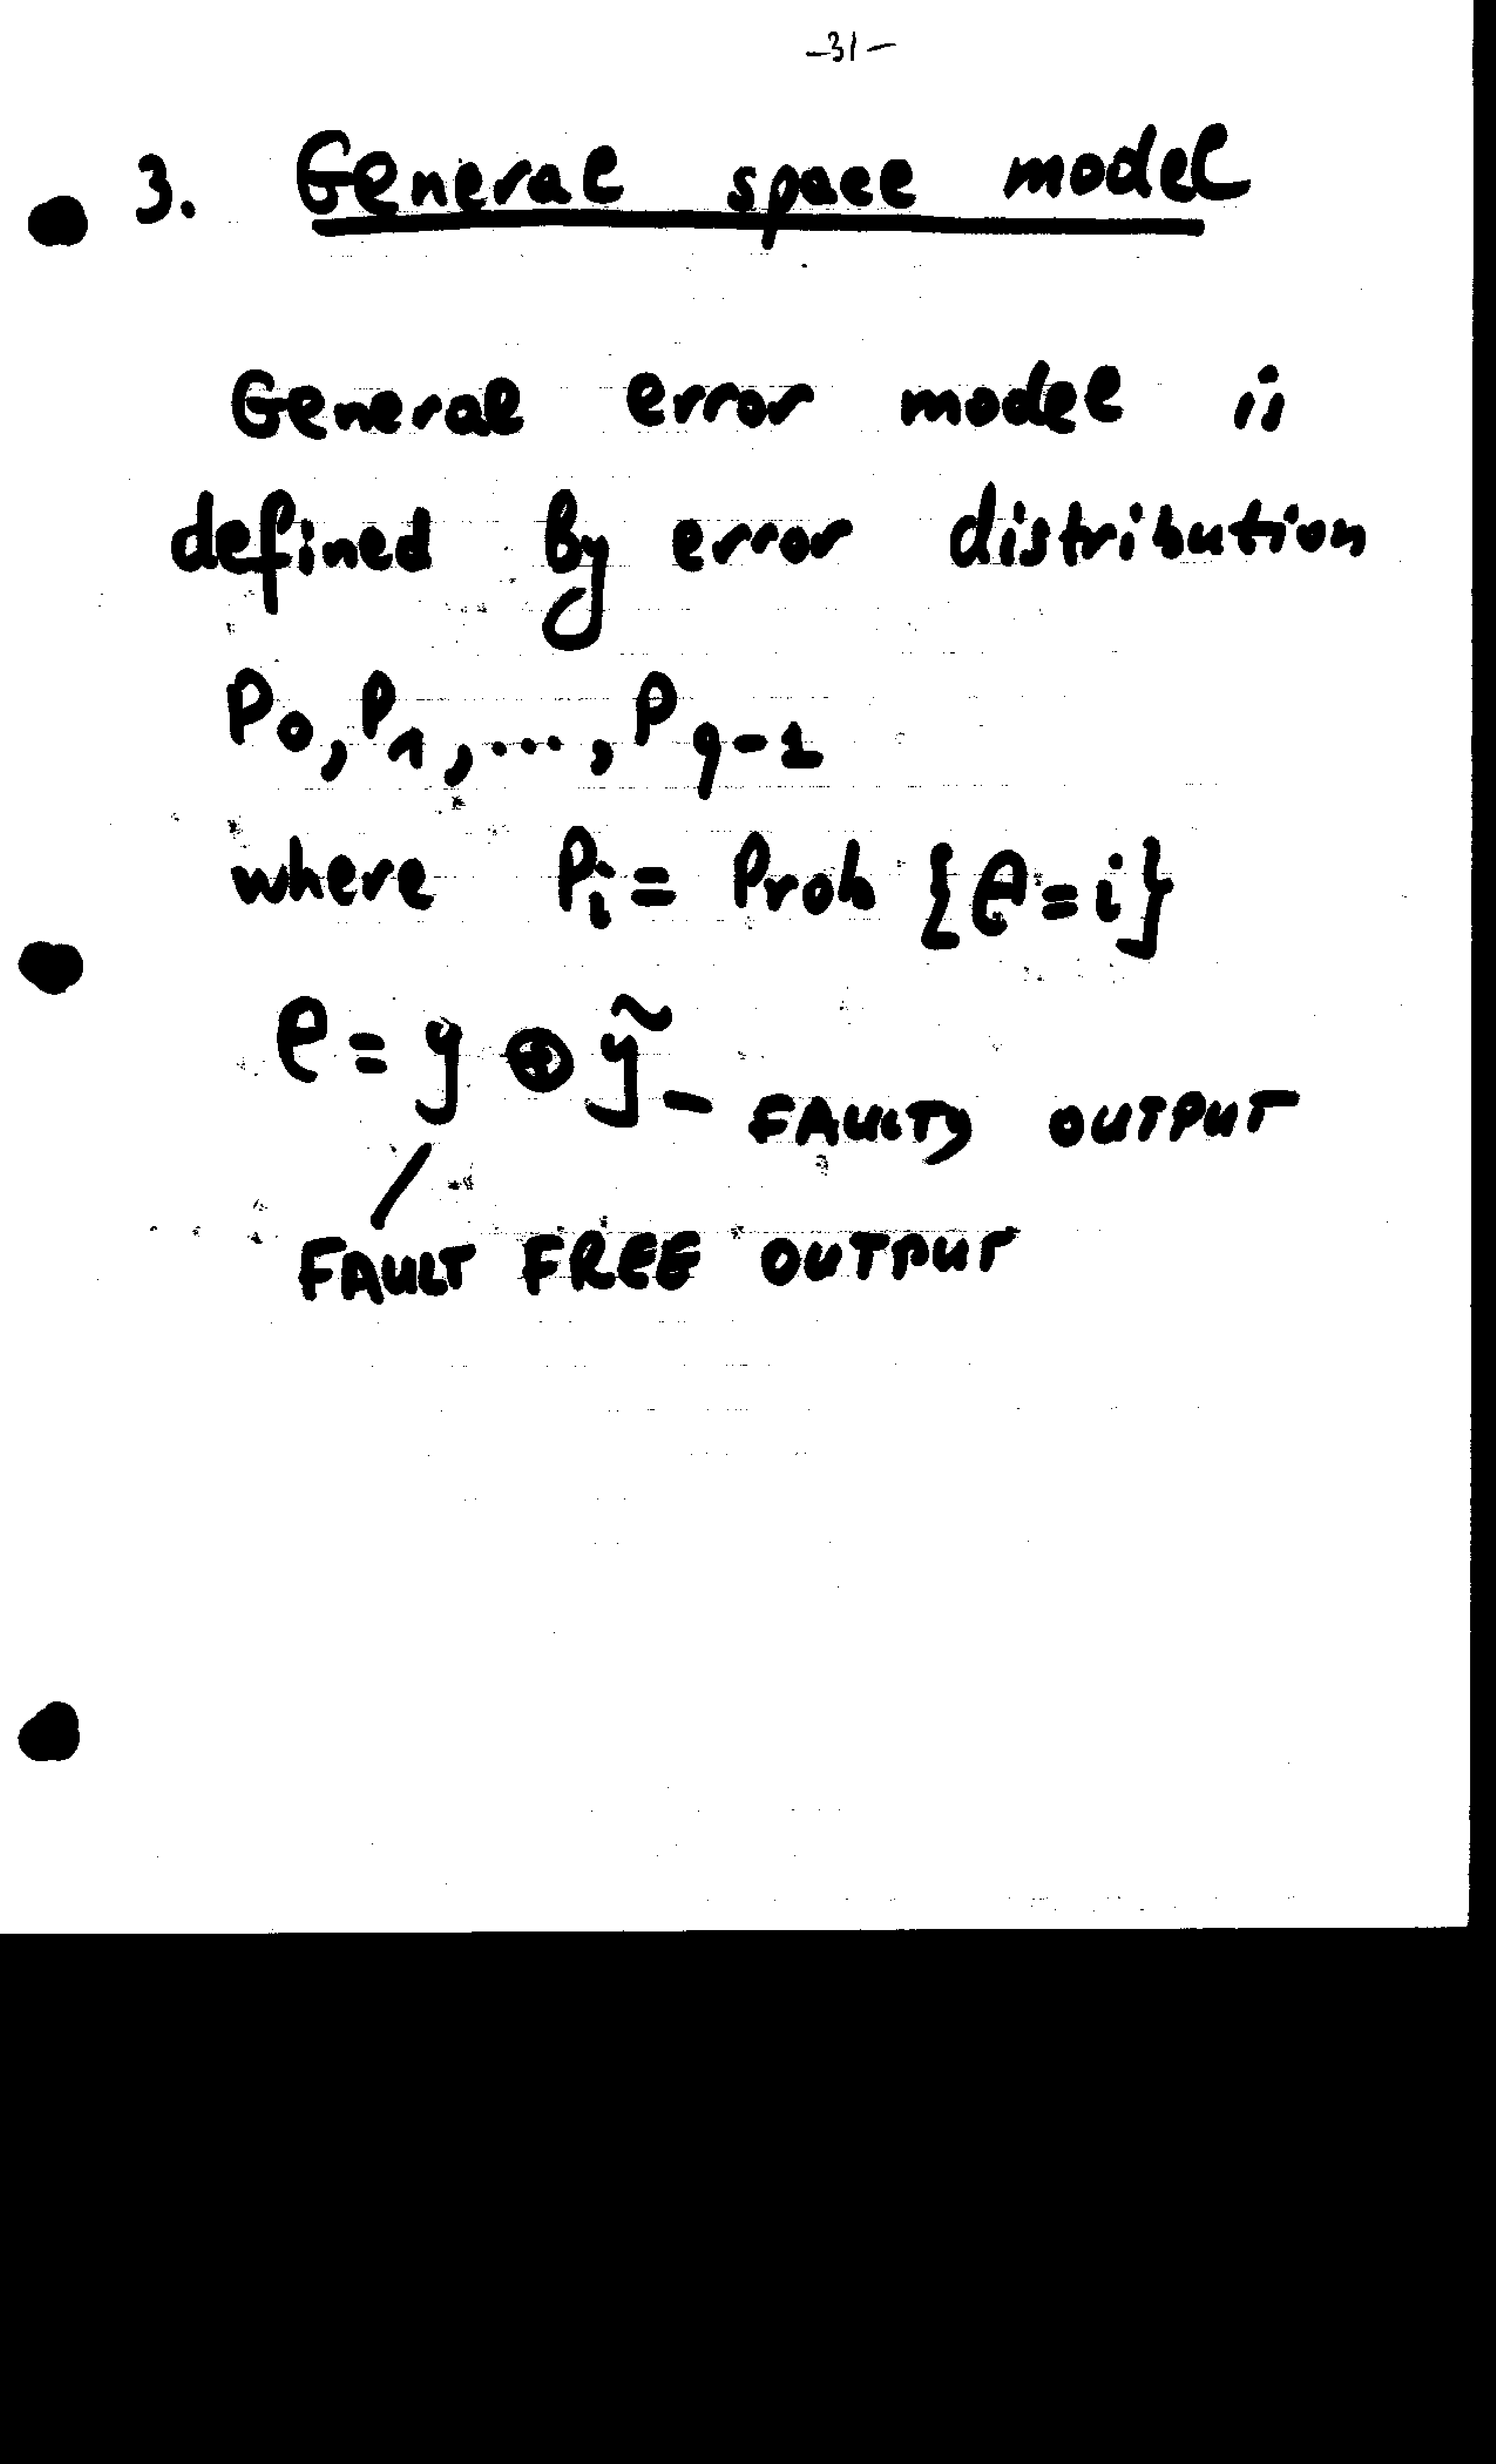 -31-
3. General space model
General error model is
defined by error distribution
P₀, P₁, ..., P_{q-1}
where Pᵢ = Prob {e=i}
e = y ⊕ ỹ - FAULTY OUTPUT
FAULT FREE OUTPUT